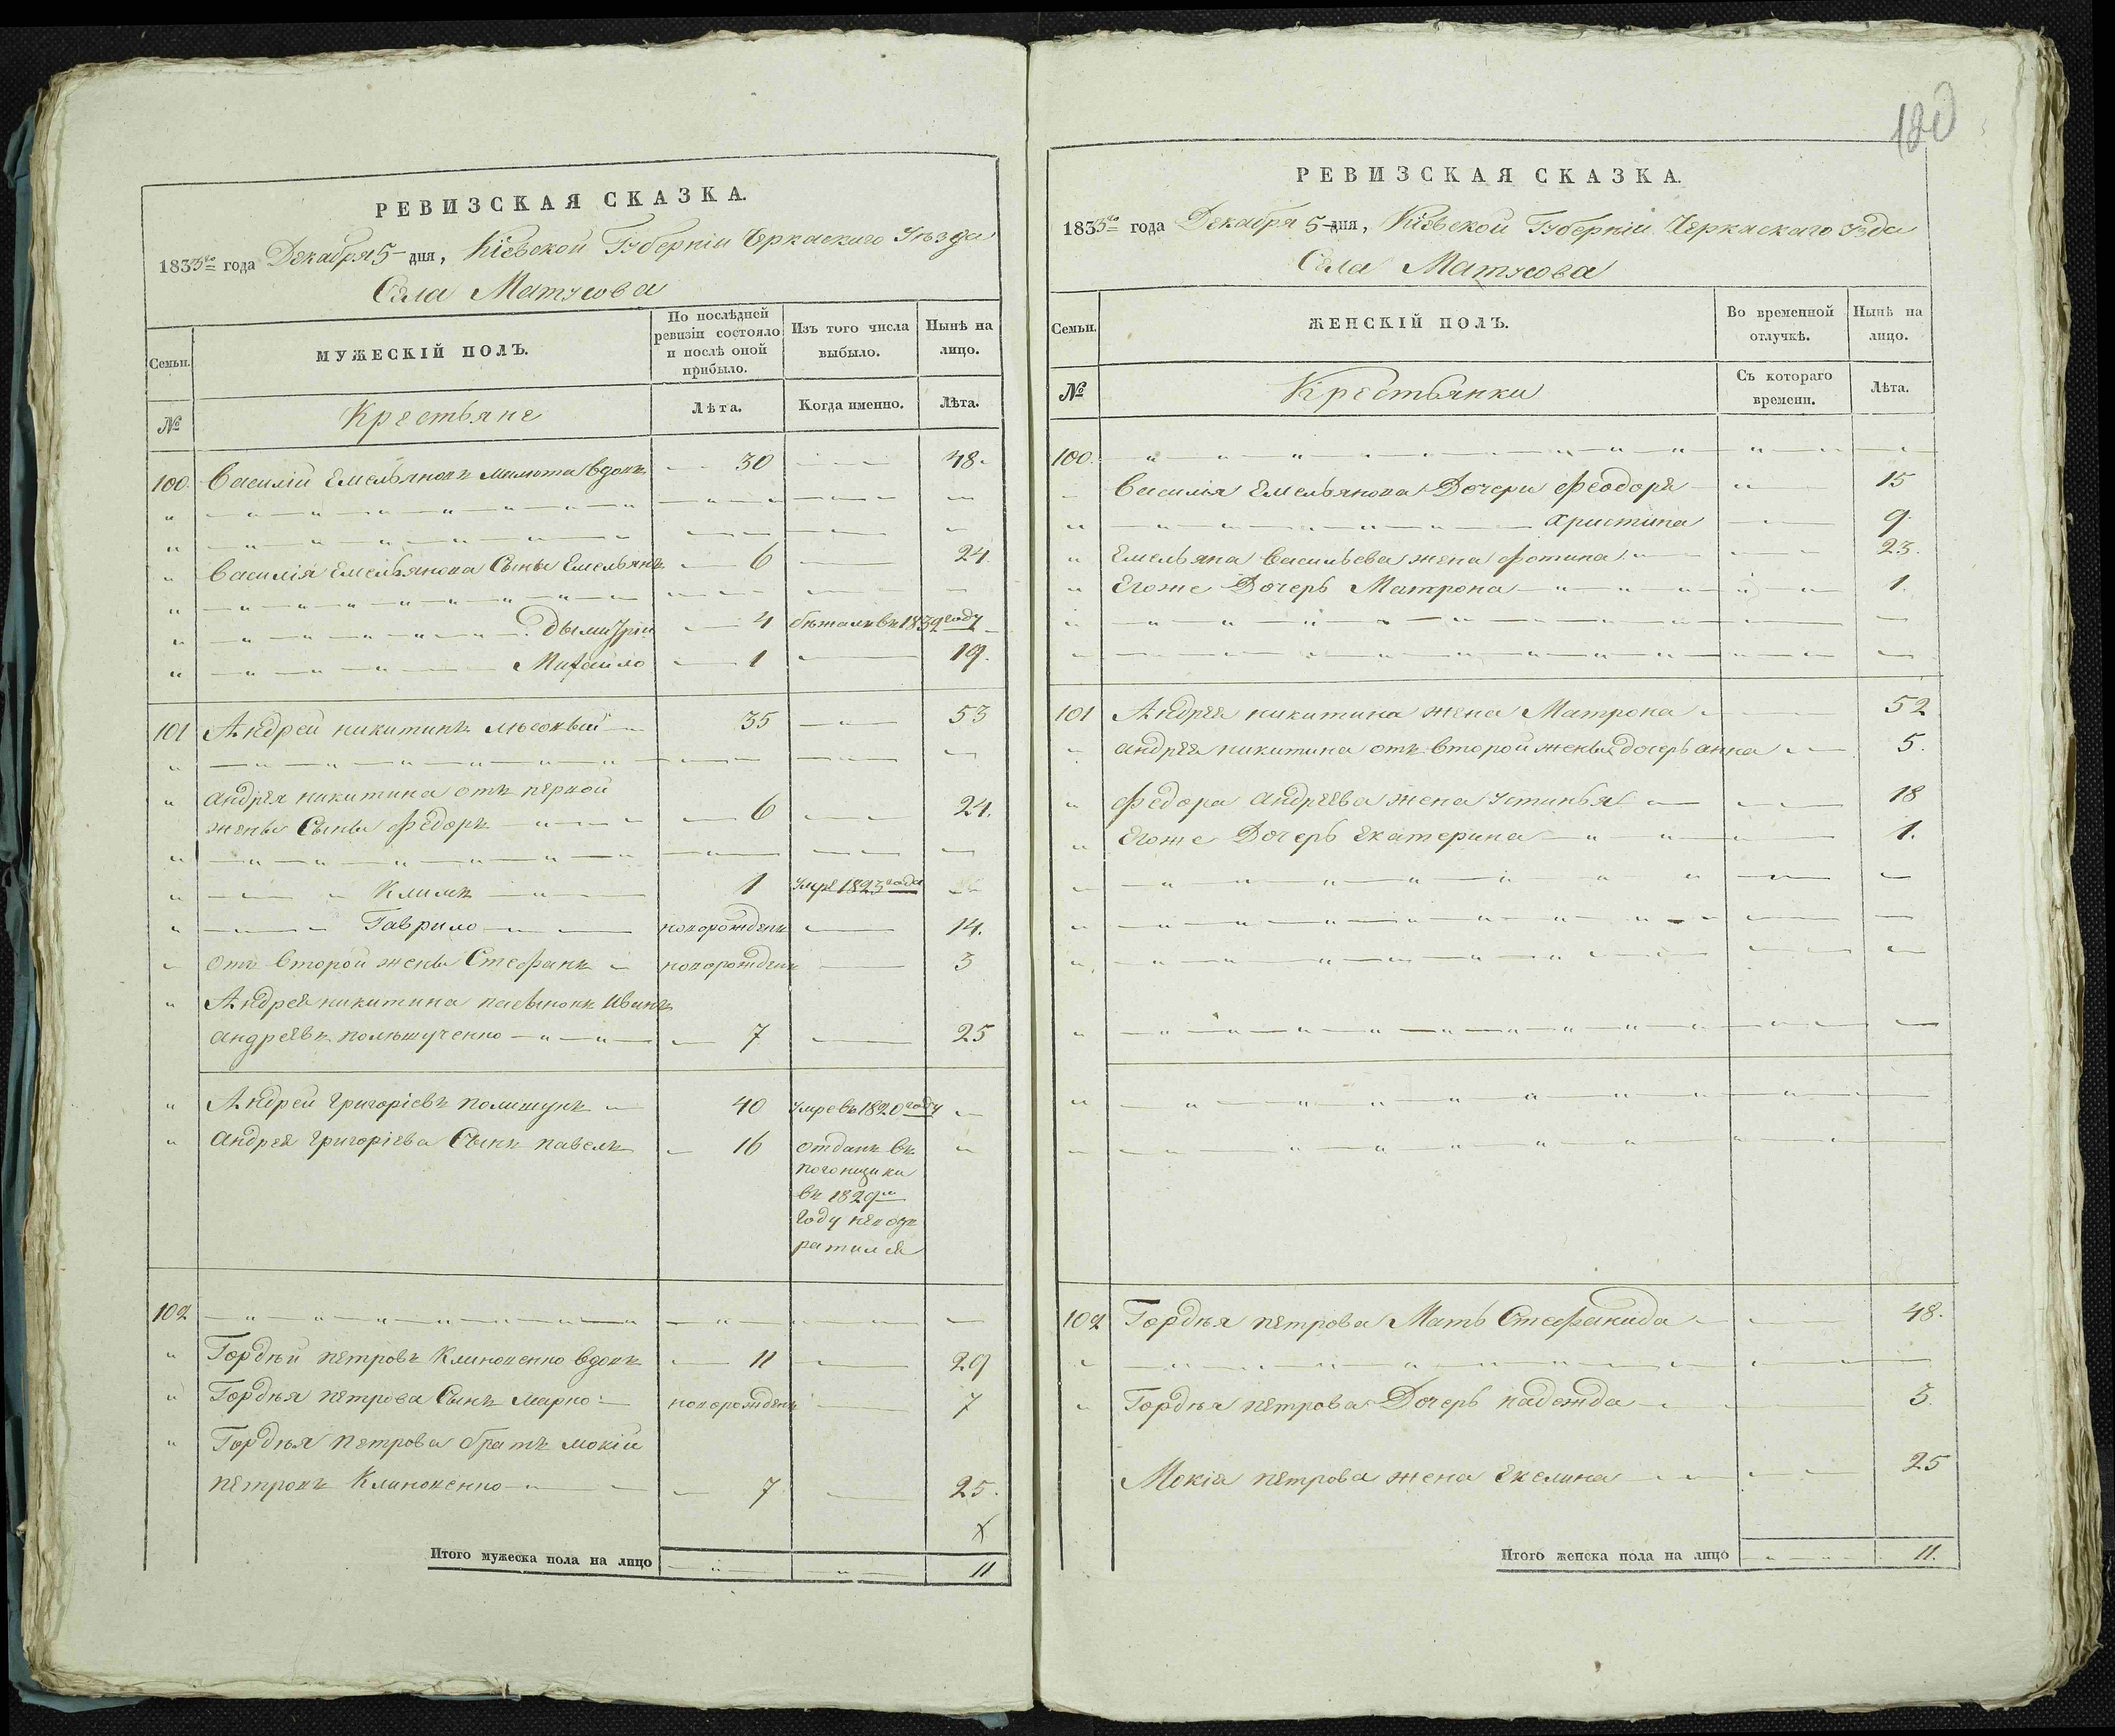 РЕВИЗСКАЯ СКАЗКА.
1833го года Декабря 5 дня, Кіевской Губерніи Черкаскаго Уѣзда
Села Матусова
Семьи.
МУЖЕСКІЙ ПОЛЪ.
По послѣдней ревизіи состояло и послѣ оной прибыло.
Изъ того числа выбыло.
Нынѣ на лицо.
№
Крестьяне
Лѣта.
Когда именно.
Лѣта.
100. Василій Емельяновъ Милюта вдовъ 30 48.
Василія Емельянова Сыны Емельянъ 6 24
Дымитрій 4 бѣжалъ въ 1832 году
Михайло 1 19.
101 Андрей никитинъ 35 53
андрея никитина отъ первой
жены Сыны Федоръ 6 24.
Климъ 1 умре 1823 года
Гаврило новорожденъ 14.
отъ второй жены Стефанъ новорожденъ 3
Андрея никитина пасынокъ Иванъ
андреевъ 7 25
Андрей григоріевъ полищукъ 40 умре въ 1820 году
андрея григоріева Сынъ павелъ 16 отданъ въ
погонщики
въ 1829м
году невоз
ратился
102
Гордѣй петровъ Климовенко вдовъ 11 29
Гордѣя петрова Сынъ марко новорожденъ 7
Гордѣя петрова братъ мокій
петровъ Климовенко 7 25.
х
Итого мужеска пола на лицо 11
180
РЕВИЗСКАЯ СКАЗКА.
1833го года Декабря 5 дня, Кіевской Губерніи Черкаскаго Уѣзда
Села Матусова
Семьи.
ЖЕНСКІЙ ПОЛЪ.
Во временной отлучкѣ.
Нынѣ на лицо.
№
Крестьянки
Съ котораго времени.
Лѣта.
100.
Василія Емельянова Дочери Феодора 15
христина 9.
Емельяна Васильева жена фотина 23.
Егоже Дочерь Матрона 1.
101 Андрея никитина жена Матрона 52
андрея никитина отъ второй жены дочерь анна 5.
федора андреева жена устинья 18
Егоже Дочерь Екатерина 1.
102 Гордѣя петрова Мать Стефанида 48.
Гордѣя петрова Дочерь надежда 3
Мокія петрова жена Екелина 25
Итого женска пола на лицо 11.